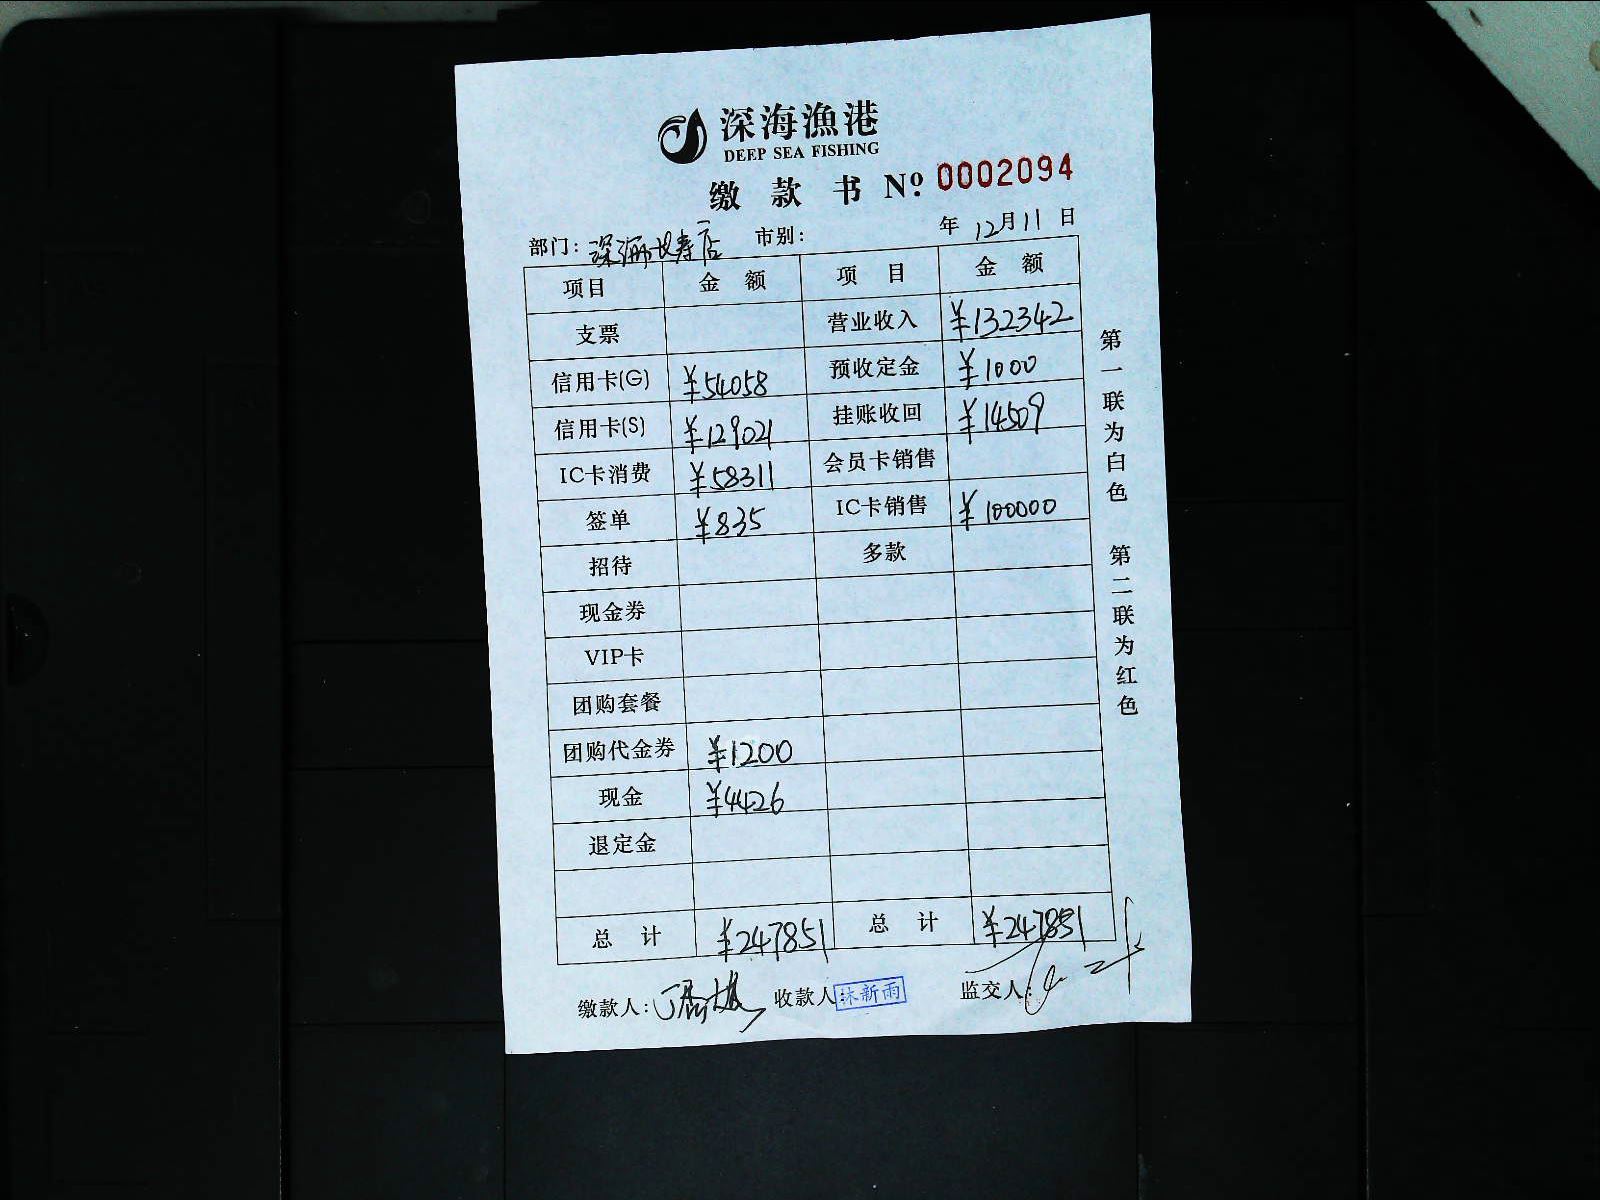 深海漁港
DEEP SEA FISHING
缴款书 Nº 0002094
部门: 深海长寿店 市别: 年 12月11日
项目 金额 项目 金额
支票 营业收入 ¥132342
信用卡(G) ¥54058 预收定金 ¥1000
信用卡(S) ¥129021 挂账收回 ¥14509
IC卡消费 ¥58311 会员卡销售
签单 ¥835 IC卡销售 ¥100000
招待 多款
现金券
VIP卡
团购套餐
团购代金券 ¥1200
现金 ¥4426
退定金
总计 ¥247851 总计 ¥247851
缴款人: 收款人: 新雨 监交人:
第一联为白色 第二联为红色